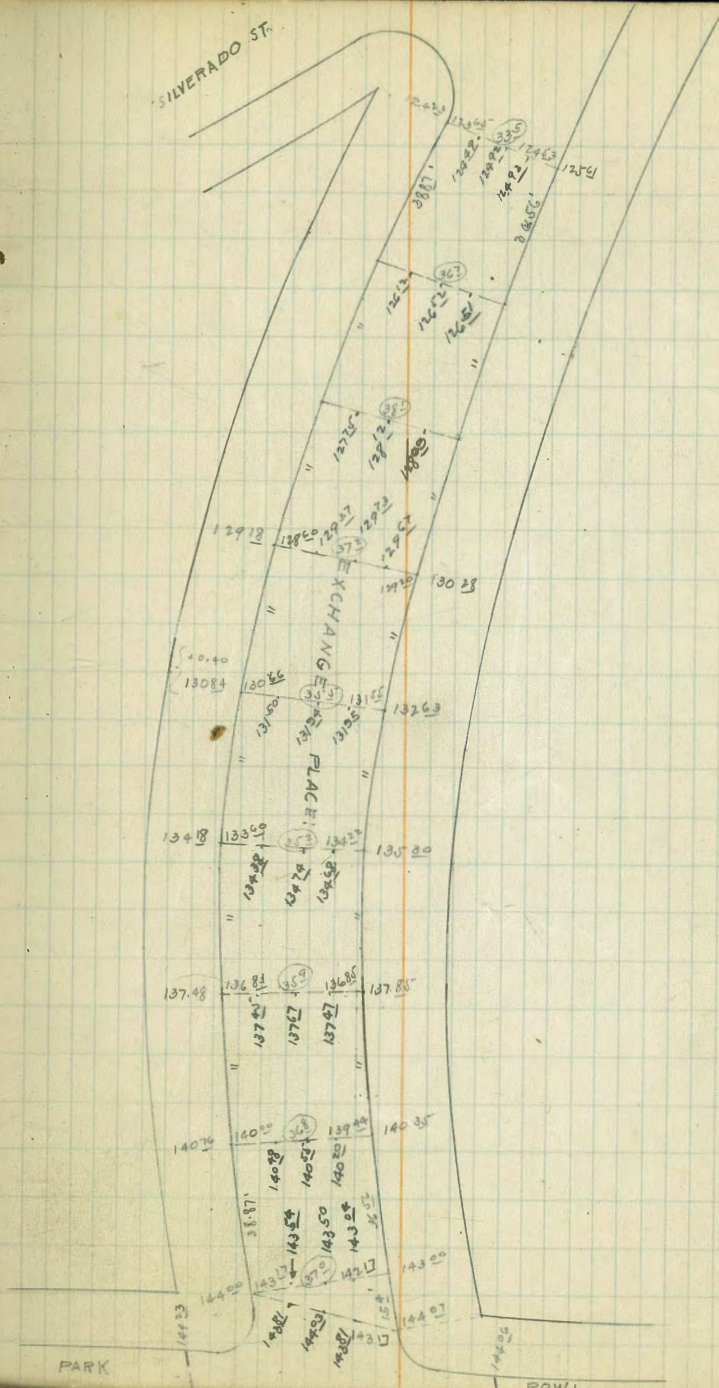 SILVERADO ST.
12423 12365 335 12463 12561
12448 12492 12493
38.87'
367
12612 12652 12651
"
"
381
12775 12812
"
"
12937 12973 12967
12918 12860 372 12920 13028
EXCHANGE PLACE
"
"
+0.40
13084 13066 13155 13263
13150 13195
"
"
13418 13350 13422 13530
13438 13474 13468
"
"
137.48 13687 359 13685 137.85
13745 13767 13747
"
"
14076 14000 368 13944 14035
14048 14058 14020
38.87' 36.52
14354 14350 14304
14400 14317 370 14217 14300
154
14407
14381 14403 14381 14317
14423 14406
PARK ROW